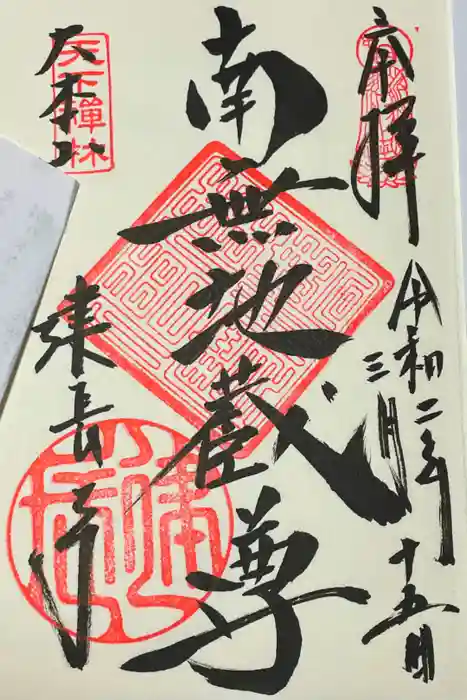 奉拝
令和二年
三月
十五日
南無地蔵尊
天下禅林
大本山
建長寺